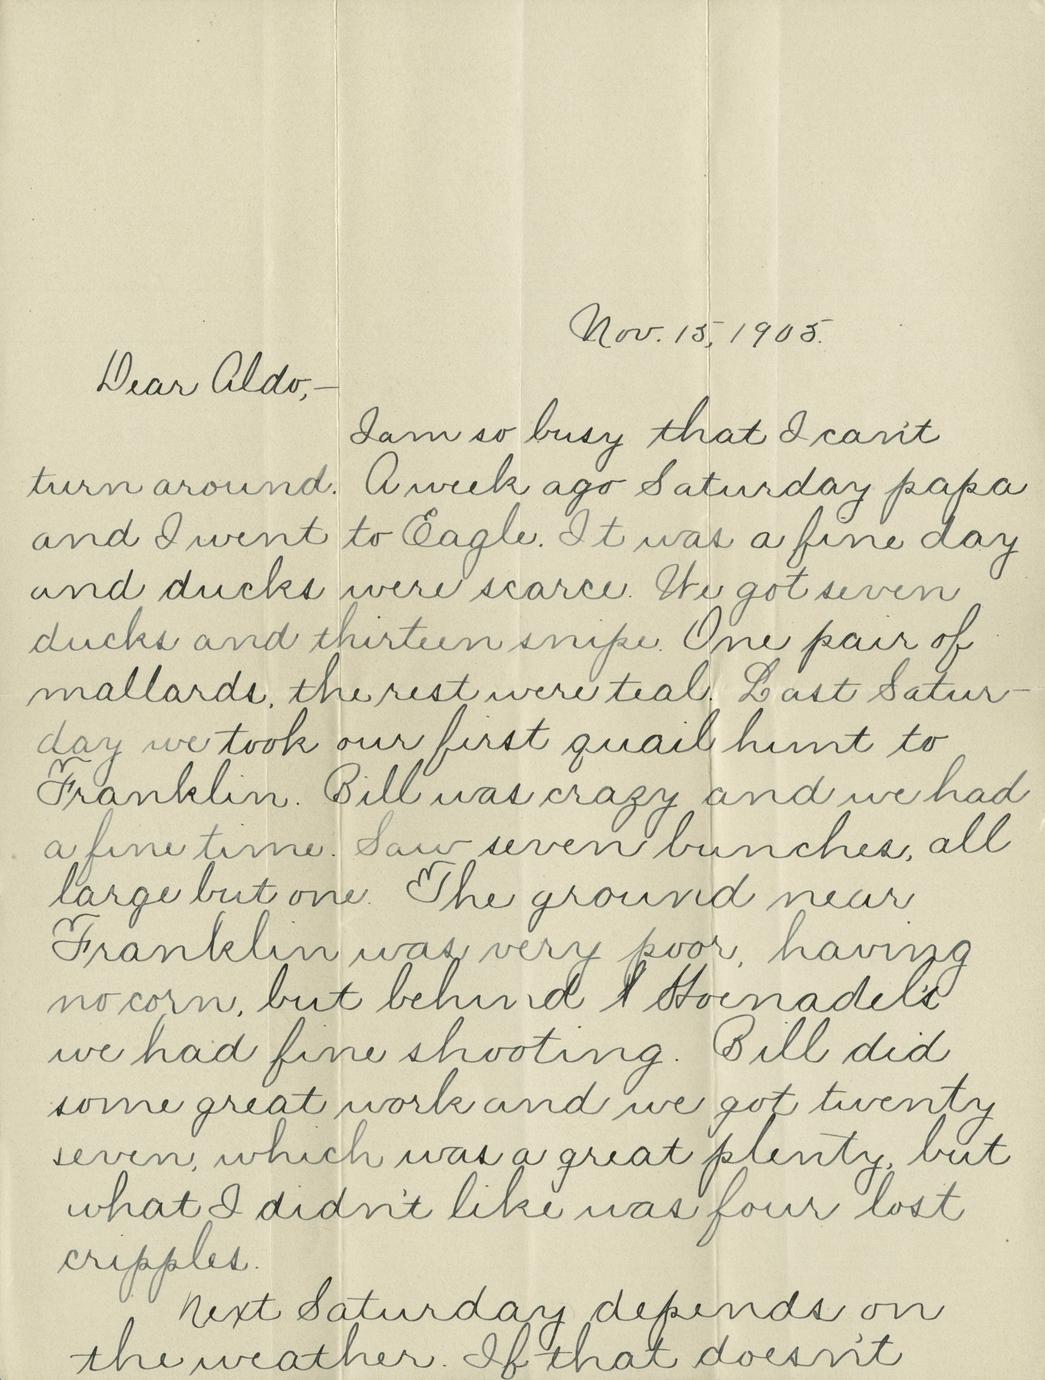 Nov. 15, 1905.
Dear Aldo,—
I am so busy that I can't
turn around. A week ago Saturday papa
and I went to Eagle. It was a fine day
and ducks were scarce. We got seven
ducks and thirteen snipe. One pair of
mallards, the rest were teal. Last Satur-
day we took our first quail hunt to
Franklin. Bill was crazy and we had
a fine time. Saw seven bunches, all
large but one. The ground near
Franklin was very poor, having
no corn, but behind Hoenadel's
we had fine shooting. Bill did
some great work and we got twenty
seven, which was a great plenty, but
what I didn't like was four lost
cripples.
Next Saturday depends on
the weather. If that doesn't